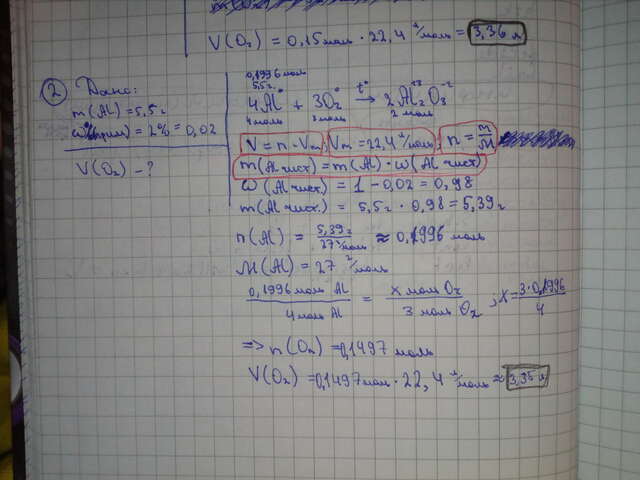 V(O₂) = 0,15моль · 22,4 л/моль = 3,36 л
② Дано:
m(Al) = 5,5г
ω(прим) = 2% = 0,02
V(O₂) - ?
0,1996 моль
5,5г
4Al⁰ + 3O₂⁰ t° → 2Al₂⁺³O₃⁻²
4 моль 3 моль 2 моль
V = n · Vm; Vm = 22,4 л/моль; n = m/M
m(Al чист) = m(Al) · ω(Al чист)
ω(Al чист.) = 1 - 0,02 = 0,98
m(Al чист.) = 5,5г · 0,98 = 5,39г
n(Al) = 5,39г / 27 г/моль ≈ 0,1996 моль
M(Al) = 27 г/моль
0,1996 моль Al / 4 моль Al = x моль O₂ / 3 моль O₂ ; x = 3·0,1996 / 4
=> n(O₂) = 0,1497 моль
V(O₂) = 0,1497моль · 22,4 л/моль ≈ 3,35 л